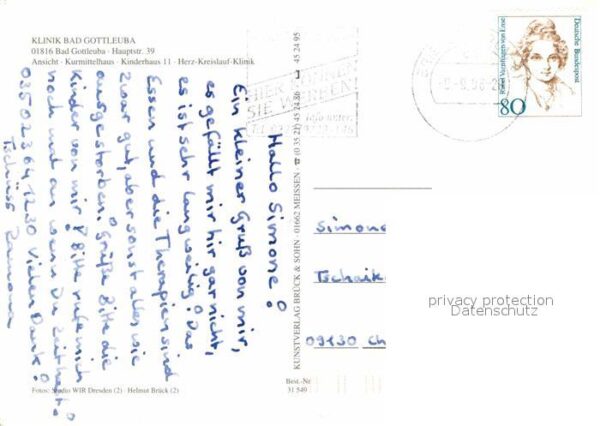 KLINIK BAD GOTTLEUBA
01816 Bad Gottleuba · Hauptstr. 39
Ansicht · Kurmittelhaus · Kinderhaus 11 · Herz-Kreislauf-Klinik
Hallo Simone!
Ein kleiner Gruß von mir,
es gefällt mir hir gar nicht,
es ist sehr langweilig! Das
Essen und die Therapien sind
zwar gut, aber sonst alles wie
ausgestorben. Grüße bitte die
Kinder von mir! Bitte rufe mich
noch mal an wenn Du Zeit hast!
03502364 1230 Vielen Dank!
Tschüss Ramona
Fotos: Studio WIR Dresden (2) · Helmut Brück (2)
KUNSTVERLAG BRÜCK & SOHN · 01662 MEISSEN · (0 35 21) 45 24 86 45 24 95
Best.-Nr
31 549
HIER KÖNNEN
SIE WERBEN
Deutsche Bundespost
Rahel Varnhagen von Ense
80
Simone
Tschaik
09130 Ch
privacy protection
Datenschutz